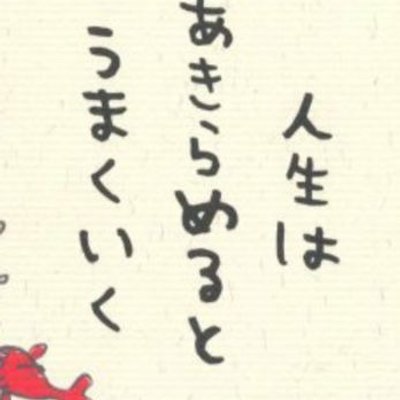 人生は
あきらめると
うまくいく